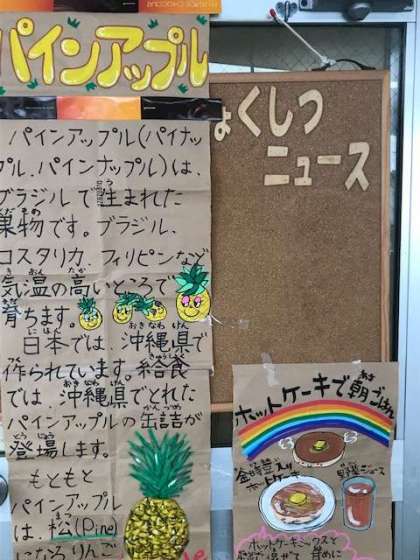 パインアップル
パインアップル(パイナッ
プル、パインナップル)は、
ブラジルで生まれた
果物です。ブラジル、
コスタリカ、フィリピンなど
気温の高いところで
育ちます。
日本では、沖縄県で
作られています。給食
では、沖縄県でとれた
パインアップルの缶詰が
登場します。
もともと
パインアップル
は、松(Pine)
になるりんご
ょくしつ
ニュース
ホットケーキで朝ごはん
金時豆入り
ホットケーキ
野菜ジュース
ホットケーキミックスと